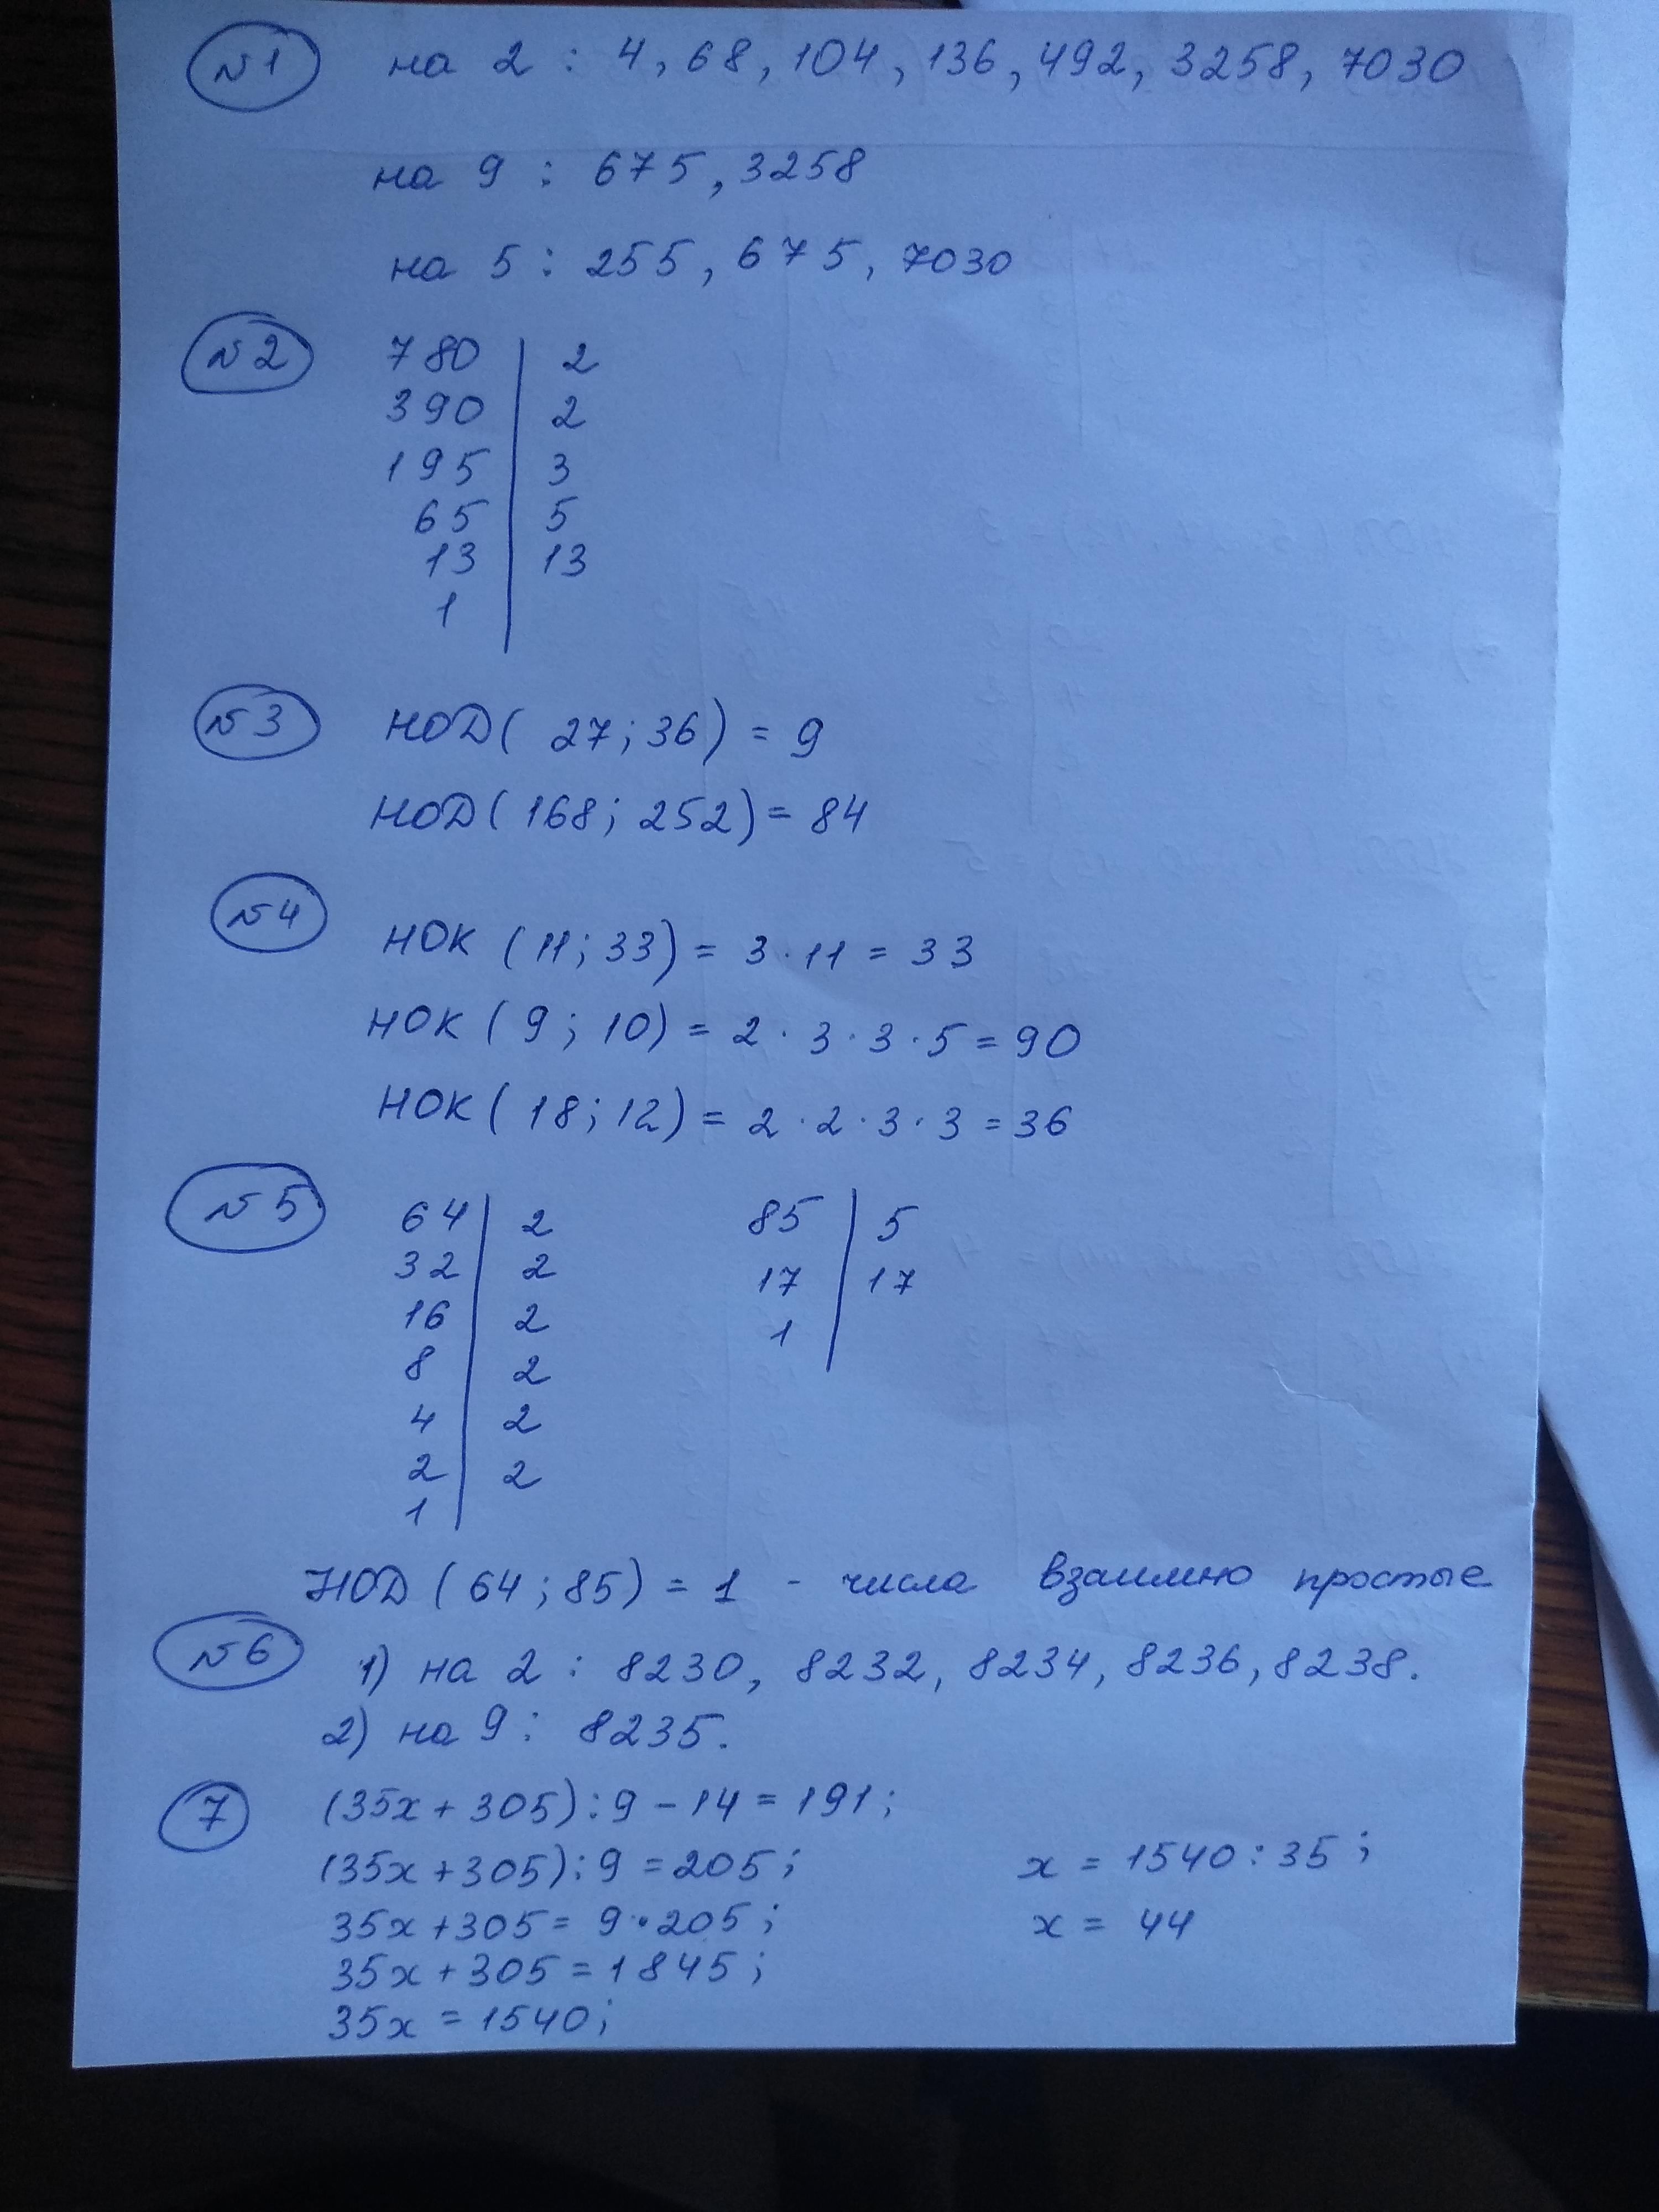 №1 на 2 : 4, 68, 104, 136, 492, 3258, 7030
на 9 : 675, 3258
на 5 : 255, 675, 7030
№2 780 | 2
390 | 2
195 | 3
65 | 5
13 | 13
1
№3 НОД( 27; 36) = 9
НОД(168; 252) = 84
№4 НОК (11; 33) = 3 · 11 = 33
НОК ( 9 ; 10) = 2 · 3 · 3 · 5 = 90
НОК ( 18; 12) = 2 · 2 · 3 · 3 = 36
№5 64 | 2 85 | 5
32 | 2 17 | 17
16 | 2 1
8 | 2
4 | 2
2 | 2
1
НОД (64 ; 85) = 1 - числа взаимно простые
№6 1) на 2 : 8230, 8232, 8234, 8236, 8238.
2) на 9 : 8235.
7 (35x + 305) : 9 - 14 = 191;
(35x + 305) : 9 = 205; x = 1540 : 35 ;
35x + 305 = 9 · 205 ; x = 44
35x + 305 = 1845 ;
35x = 1540;